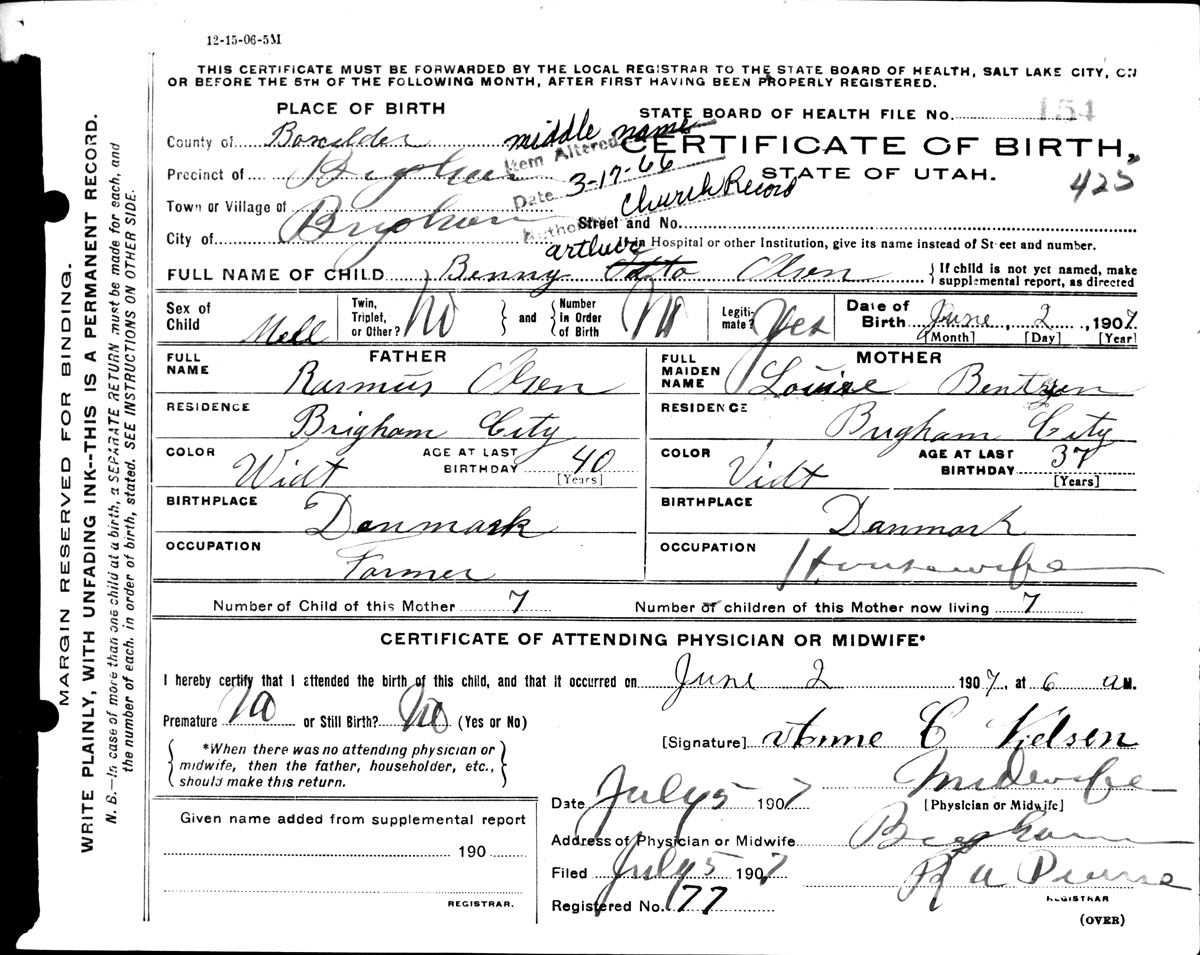 12-15-06-5M
THIS CERTIFICATE MUST BE FORWARDED BY THE LOCAL REGISTRAR TO THE STATE BOARD OF HEALTH, SALT LAKE CITY, ON
OR BEFORE THE 5TH OF THE FOLLOWING MONTH, AFTER FIRST HAVING BEEN PROPERLY REGISTERED.
PLACE OF BIRTH
STATE BOARD OF HEALTH FILE No. 154
County of Boxelder
middle name
CERTIFICATE OF BIRTH,
Item Altered
Precinct of Brigham
STATE OF UTAH.
425
Date 3-17-66
Church Record
Town or Village of
Street and No.
City of Brigham
If in Hospital or other Institution, give its name instead of Street and number.
arthur
FULL NAME OF CHILD Benny Otto Olsen
If child is not yet named, make supplemental report, as directed
Sex of Child Mell
Twin, Triplet, or Other? No
and Number in Order of Birth No
Legitimate? Yes
Date of Birth June 2, 1907
[Month] [Day] [Year]
FATHER
FULL NAME Rasmus Olsen
RESIDENCE Brigham City
COLOR Widt
AGE AT LAST BIRTHDAY 40
[Years]
BIRTHPLACE Denmark
OCCUPATION Farmer
MOTHER
FULL MAIDEN NAME Louise Bentzen
RESIDENCE Brigham City
COLOR Vidt
AGE AT LAST BIRTHDAY 37
[Years]
BIRTHPLACE Danmark
OCCUPATION Housewife
Number of Child of this Mother 7
Number of children of this Mother now living 7
CERTIFICATE OF ATTENDING PHYSICIAN OR MIDWIFE*
I hereby certify that I attended the birth of this child, and that it occurred on June 2 1907, at 6 a M.
Premature No or Still Birth? No (Yes or No)
*When there was no attending physician or
midwife, then the father, householder, etc.,
should make this return.
[Signature] Anne C Nielsen
Midwife
Date July 5 1907
[Physician or Midwife]
Address of Physician or Midwife Brigham
Given name added from supplemental report
190
REGISTRAR.
Filed July 5 1907
REGISTRAR
Registered No. 77
(OVER)
MARGIN RESERVED FOR BINDING.
WRITE PLAINLY, WITH UNFADING INK--THIS IS A PERMANENT RECORD.
N. B.—In case of more than one child at a birth, a SEPARATE RETURN must be made for each, and
the number of each, in order of birth, stated. SEE INSTRUCTIONS ON OTHER SIDE.